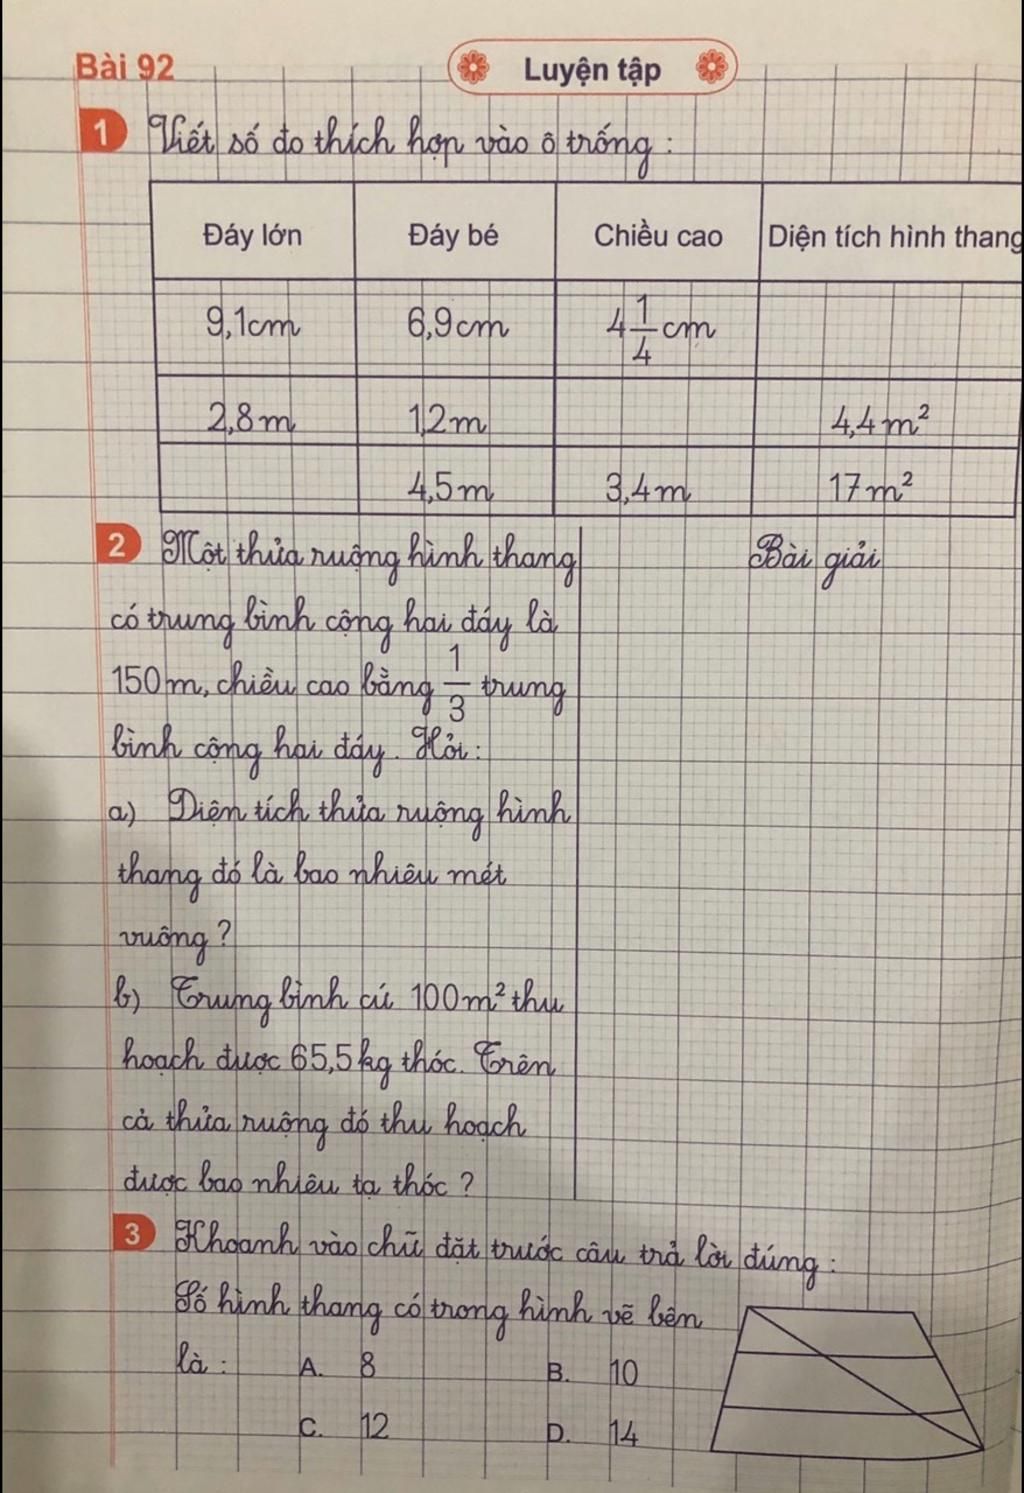 Bài 92
Luyện tập
1 Viết số đo thích hợp vào ô trống :
Đáy lớn Đáy bé Chiều cao Diện tích hình thang
9,1cm 6,9cm 4 1/4 cm
2,8m 1,2m 4,4m²
4,5m 3,4m 17m²
2 Một thửa ruộng hình thang
có trung bình cộng hai đáy là
150m, chiều cao bằng 1/3 trung
bình cộng hai đáy. Hỏi :
a) Diện tích thửa ruộng hình
thang đó là bao nhiêu mét
vuông ?
b) Trung bình cứ 100m² thu
hoạch được 65,5kg thóc. Trên
cả thửa ruộng đó thu hoạch
được bao nhiêu tạ thóc ?
Bài giải
3 Khoanh vào chữ đặt trước câu trả lời đúng :
Số hình thang có trong hình vẽ bên
là : A. 8 B. 10
C. 12 D. 14